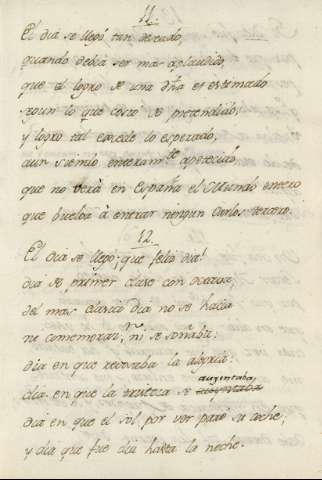 11.
El dia se llegó tan deseado,
quando debia ser mas aplaudido,
que el logro de una dha es estimado
segun lo que costó de pretendido;
y logro tal excede lo esperado,
aun siendo enteramte apetecido,
que no verá en España el Mundo entero
que buelba à entrar ningun Carlos tercero.
12.
El dia se llegó; que feliz dia!
dia de primer clase con octava;
del mas clasico dia no se hacia
ne comemorar, ni se soñaba:
dia en que rebosaba la alegria:
dia en que la tristeza se ausentaba
dia en que el sol por ver paró su coche,
y dia que fue dia hasta la noche.